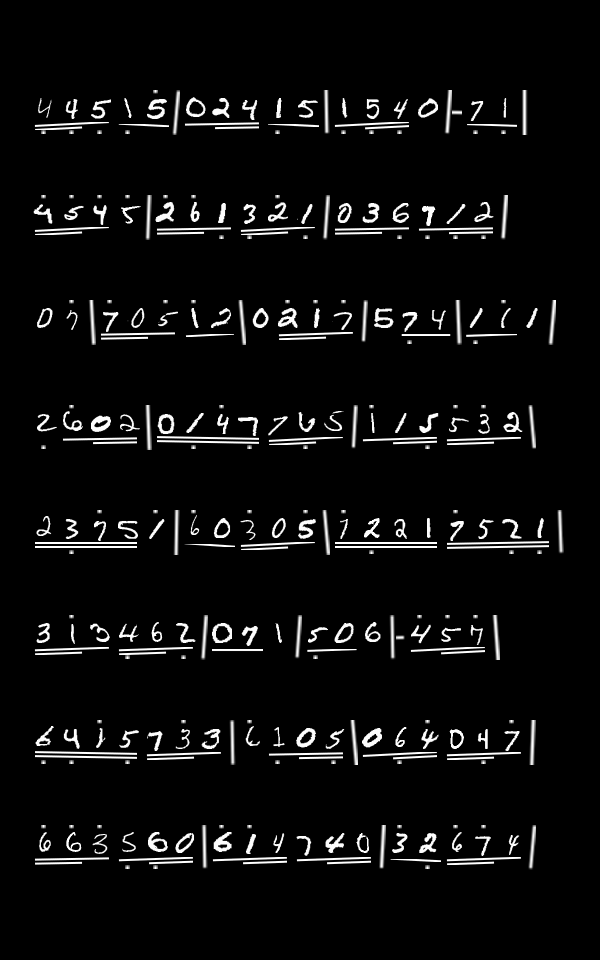 44515|02415|1540|-71
4545|261321|036712
07|70512|0217|574|111
2602|0147765|115532
23751|60305|12217521
313462|071|506|-457
6415733|6105|064047
663560|614740|32674